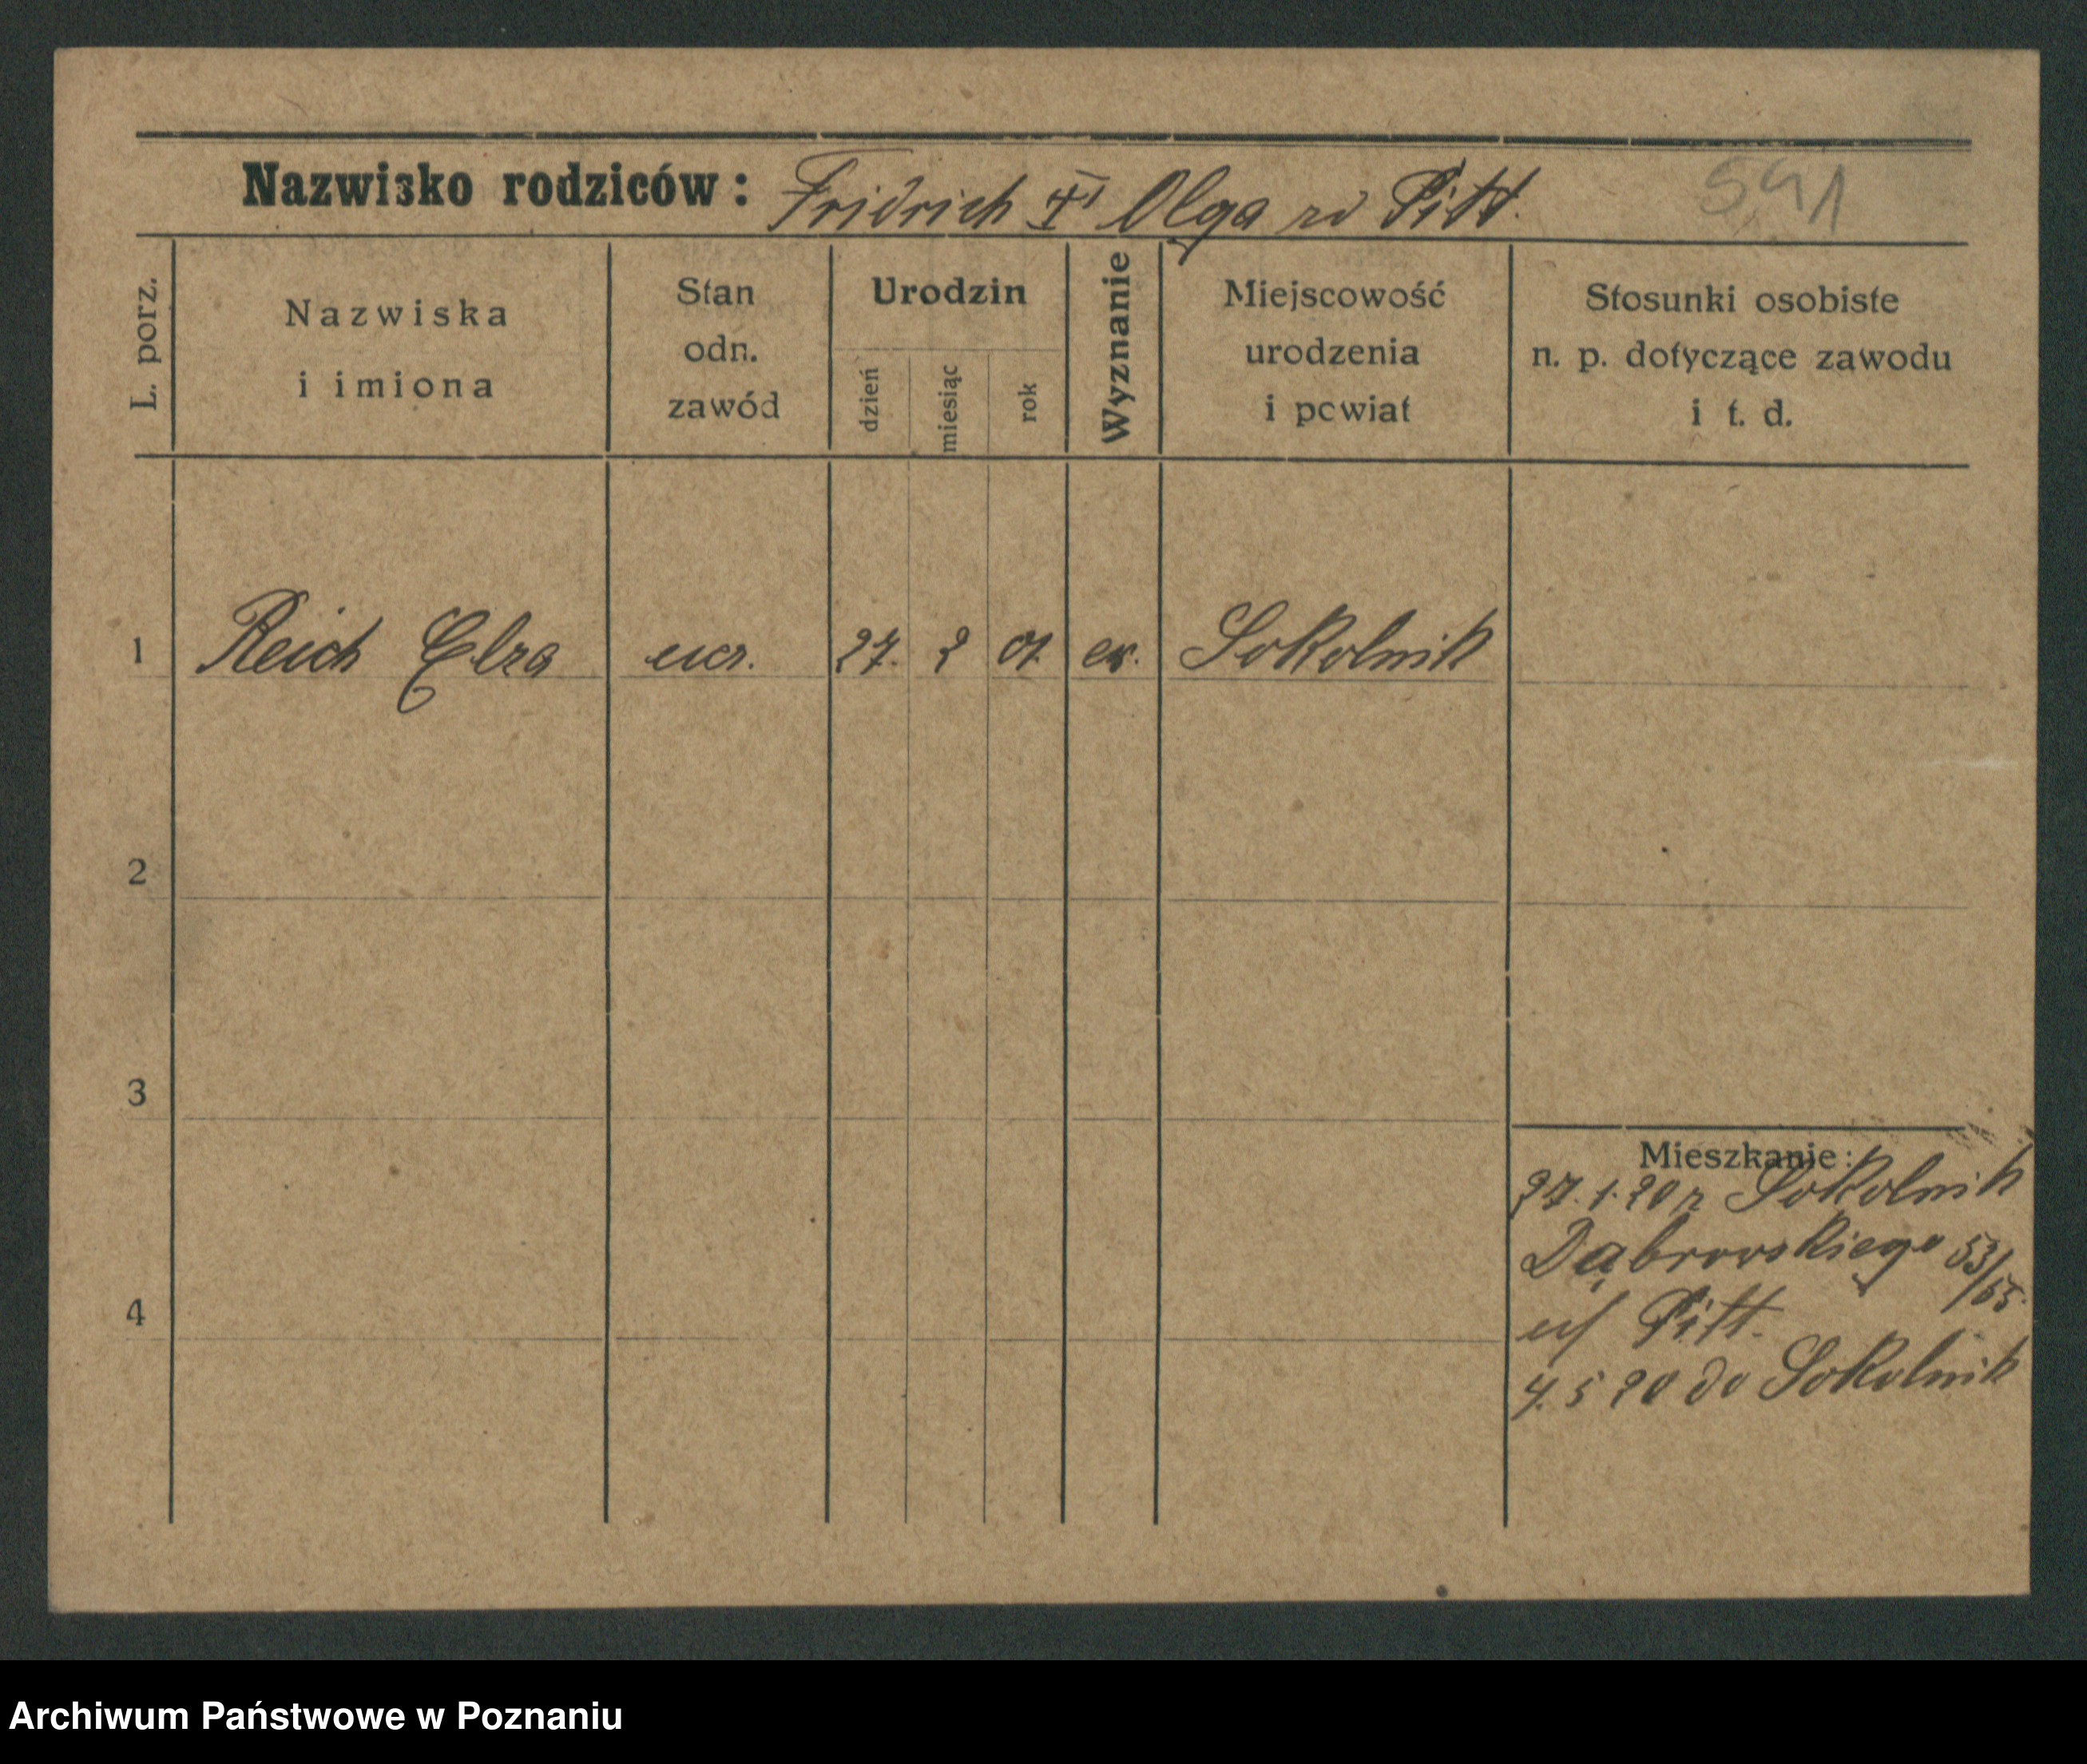 Nazwisko rodziców: Fridrich i Olga zd Pitt.
591
L. porz.
Nazwiska
i imiona
Stan
odn.
zawód
Urodzin
dzień
miesiąc
rok
Wyznanie
Miejscowość
urodzenia
i powiat
Stosunki osobiste
n. p. dotyczące zawodu
i t. d.
1 Reich Elza ucz. 27. 2 01. ew. Sokolnik
2
3
Mieszkanie:
27.1.20 z Sokolnik
Dąbrowskiego 53/55
u/ Pitt.
4
4.5 20 do Sokolnik
Archiwum Państwowe w Poznaniu